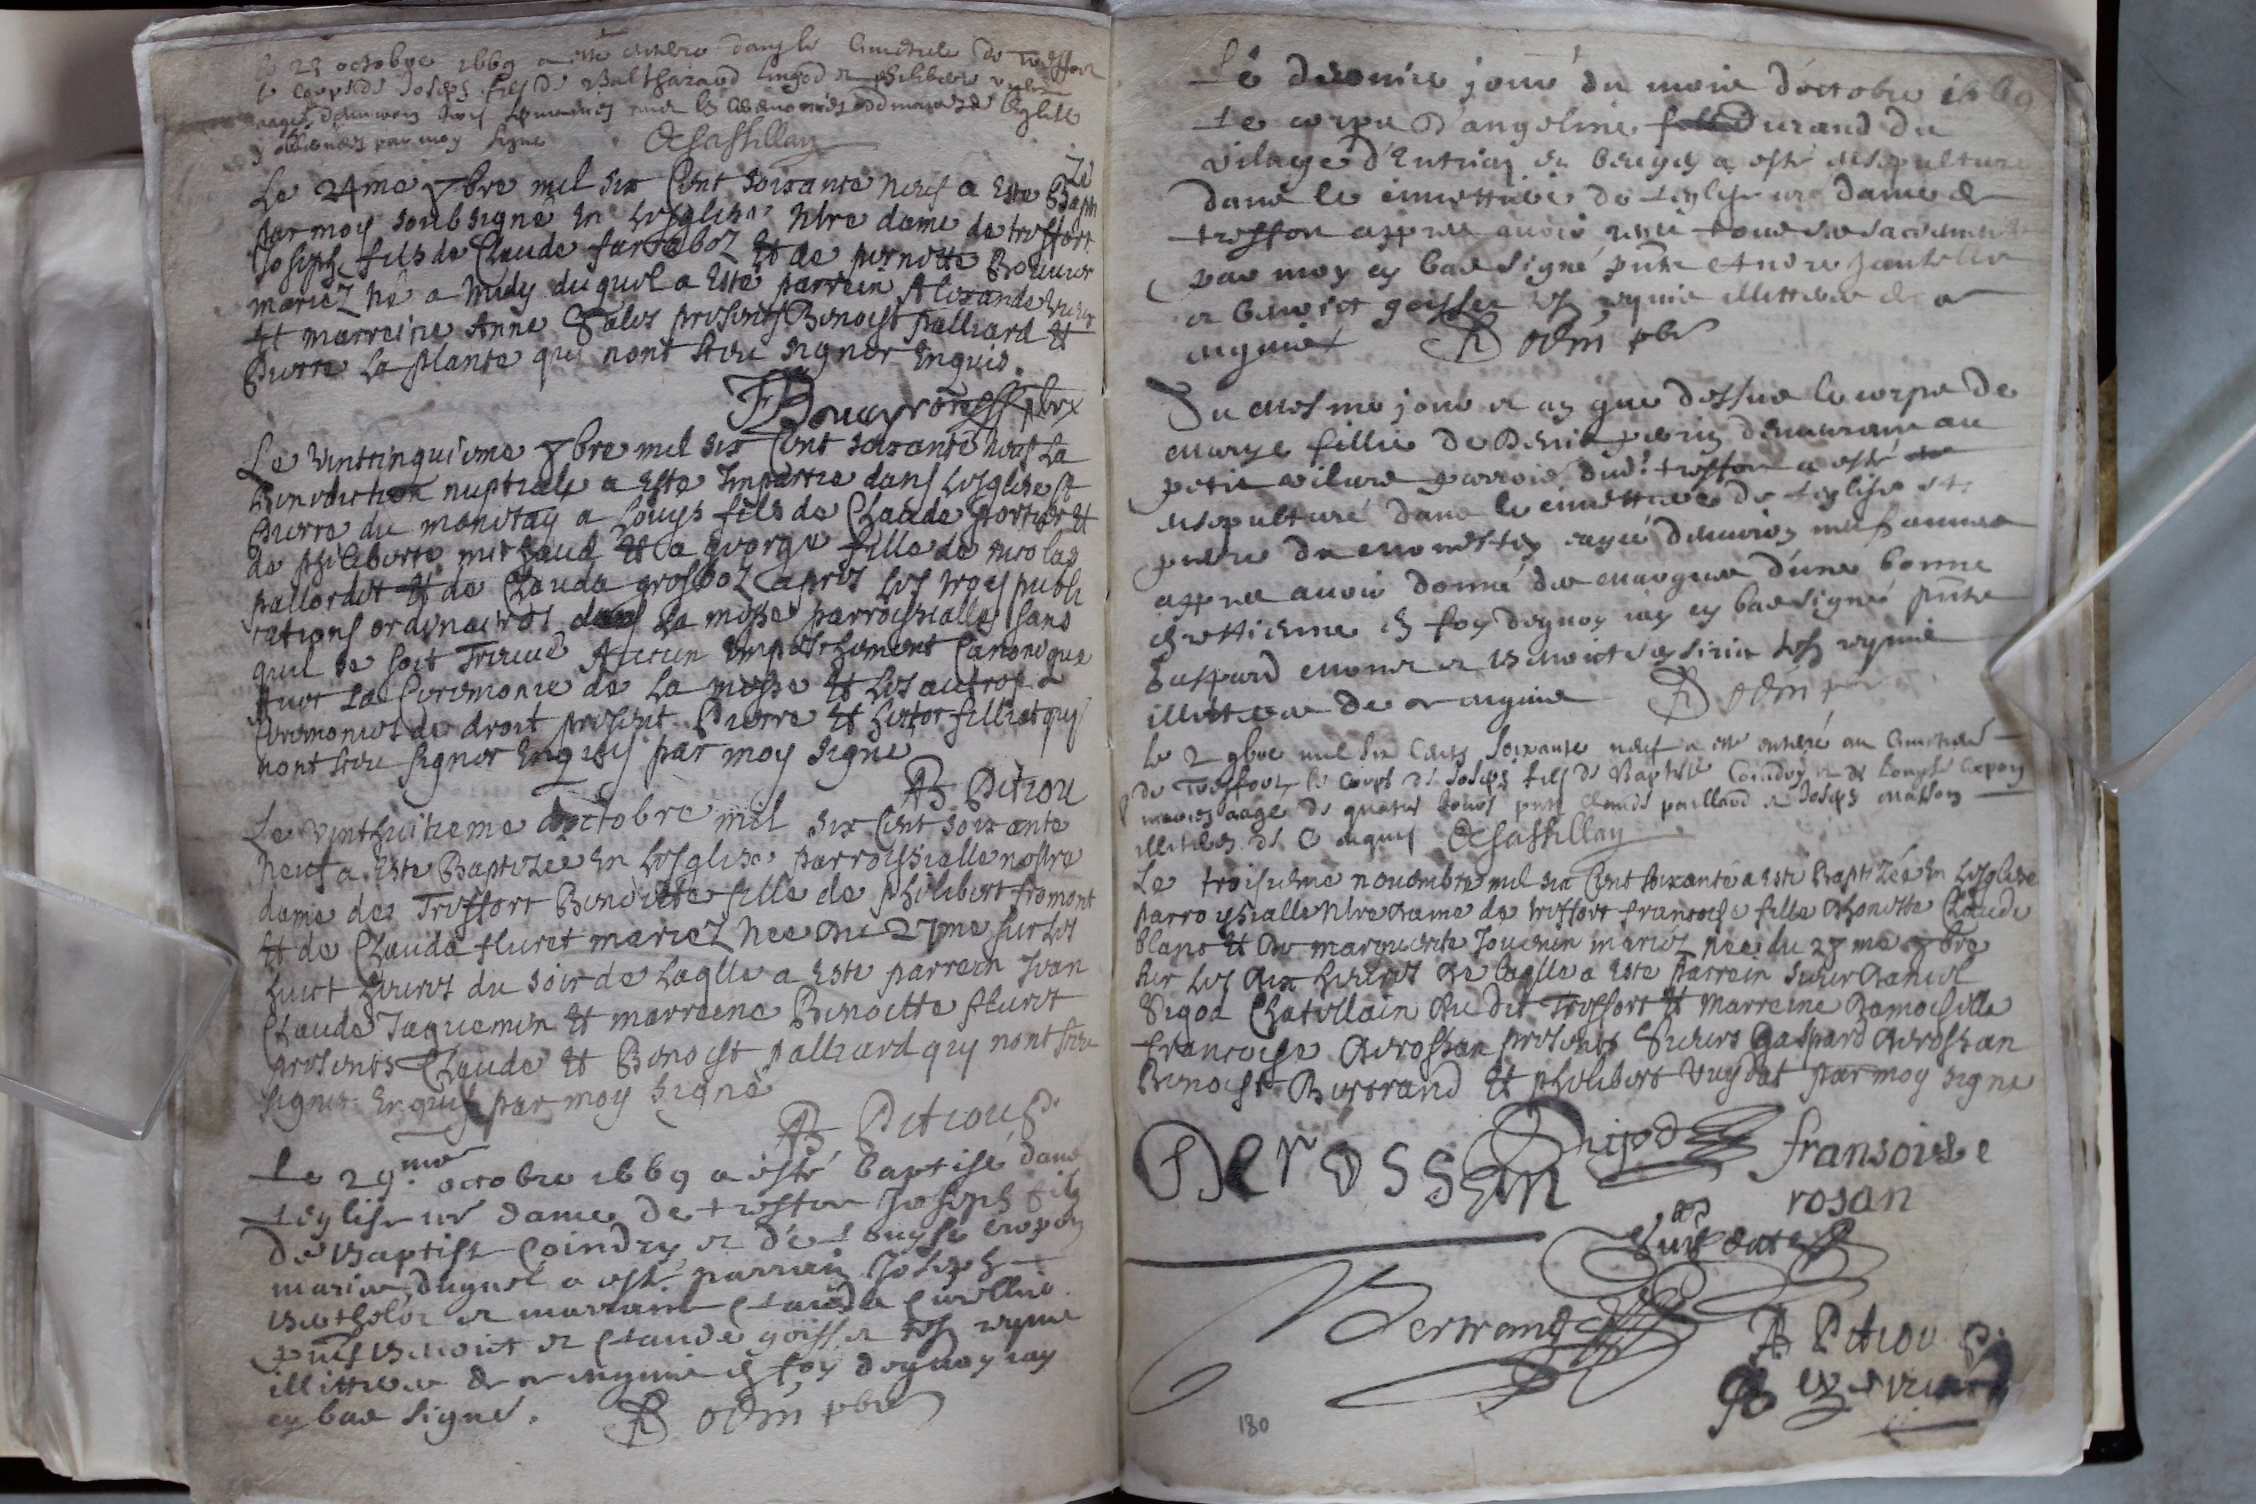 Le 23 octobre 1669 a esté enterré dans le cimetiere de treffort
le corps de Joseph fils de Balthazard
aagé d'environ trois semaines
par moy signé DeCastillan
Le 24me 8bre mil six Cent soixante neuf a este Bapti
Zé
par moy soubsigné en Lesglise Ntre dame de treffort
Joseph fils de Claude farraboz Et de pernette Bouvier
mariez Né a midy duquel a esté parrein Alexande
Et marreine Anne Sales presents Benoist palliard Et
Pierre La plante qui nont sceu signer Enquis.
Le vintcinquieme 8bre mil six Cent soixante neuf La
Benediction nuptiale a este Impartie dans Lesglise St
Pierre du monetay a Louys fils de Claude portier Et
de philiberte michaud Et a george fille de nicolas
pallordet Et de Clauda grosboz apres les troys publi
cations ordinaires dans La messe parroissialle sans
quil se soit Treuvé Aucun Empeschement Canonique
Avec La Ceremonie de La messe Et Les autres
Ceremonies de droit present Pierre Et hector filliet quy
nont sceu signer Enquis par moy signé
AB Pitiou
Le vinthuitieme octobre mil six Cent soixante
Neuf a este Baptizée en Lesglise parroissialle nostre
dame des Treffort Benoitte fille de philibert fromont
Et de Clauda fluret mariez Née du 27me sur Les
huict heures du soir de Laqlle a este parrein Jean
Claude Jaquemin Et marreine Benoitte fluret
presents Claude Et Benoist palliard quy nont sceu
signer Enquis par moy signé
AB Pitiou P.
Le 29.me octobre 1669 a esté baptisé dans
leglise nre dame de treffor Joseph fils
de Baptiste Coindry et de Louyse crepon
mariés duquel a esté parrain Joseph
Bertholon et marraine Clauda
pnts Benoict et Claude goiffet tesm requis
illitterés de ce enquis en foy dequoy iay
cy bas signé. pbre
Le dernier jour du mois d'octobre 1669
Le corps d'angeline Durand du
vilage d'Entriaz en bugey a esté ensepulturé
dans le cimettiere de leglise nre dame de
treffor appres avoir receu tous ses sacrements
par moy cy bas signé pnts
et benoict goiffet tesm requis illitterés de ce
enquis pbr
Du mesme jour et an que dessus le corps de
marye fillie de Denis perrin demeurant au
petit vilard parroisse dud. treffor a esté
ensepulturé dans le cimettiere de leglise st.
pierre du monestay aagé denviron neuf années
appres avoir donné des marques d'une bonne
chrettienne en foy dequoy iay cy bas signé pnts
Gaspard monet et Benoict tesm requis
illitterés de ce enquis
Le 2 9bre mil six Cents soixante neuf a esté enterré au Cimetiere
de Treffort le corps de Joseph fils de Baptiste Coindry et de Louyse Crepon
mariez aagé de quatre jours pnts Claude paillard et Joseph masson
illiterés de ce enquis DeCastillan
Le troisieme novembre mil six Cent soixante a esté Baptizée en Lesglise
parroyssialle Ntre dame de treffort francoise fille dhonette Claude
blanc Et de marguerite Jouvenin mariéz née du 28me 8bre
sur Les dix heures de laqlle a este parrein sieur daniel
Digod Chatellain du dit Treffort Et marreine damoiselle
francoise derossan presents Sieurs Gaspard derossan
Benoist Bertrand Et philibert Vuydat par moy signé
DeroSSEM
Digod
fransoise
rosan
Vuidat
Bertrand
AB Pitiou P.
180